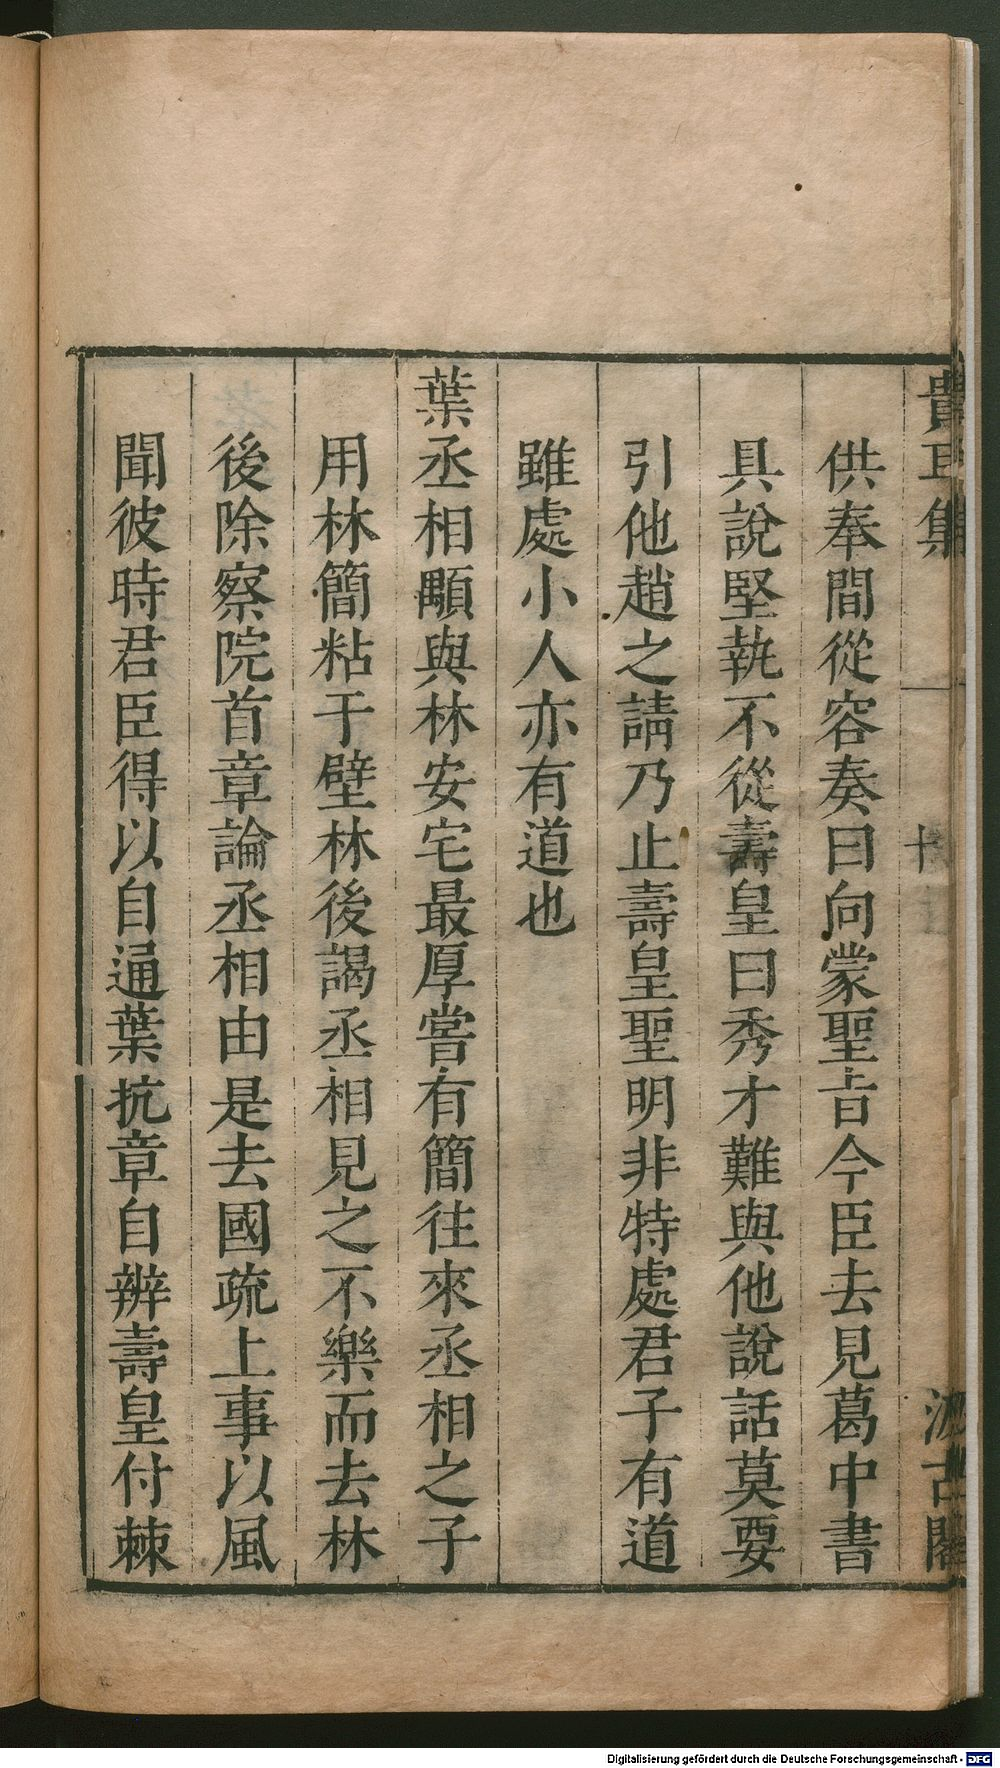 貴耳集
十
汲古閣
供奉間從容奏曰向蒙聖旨今臣去見葛中書
具說堅執不從壽皇曰秀才難與他說話莫要
引他趙之請乃止壽皇聖明非特處君子有道
雖處小人亦有道也
葉丞相顒與林安宅最厚嘗有簡往來丞相之子
用林簡粘于壁林後謁丞相見之不樂而去林
後除察院首章論丞相由是去國疏上事以風
聞彼時君臣得以自通葉抗章自辨壽皇付棘
Digitalisierung gefördert durch die Deutsche Forschungsgemeinschaft - DFG